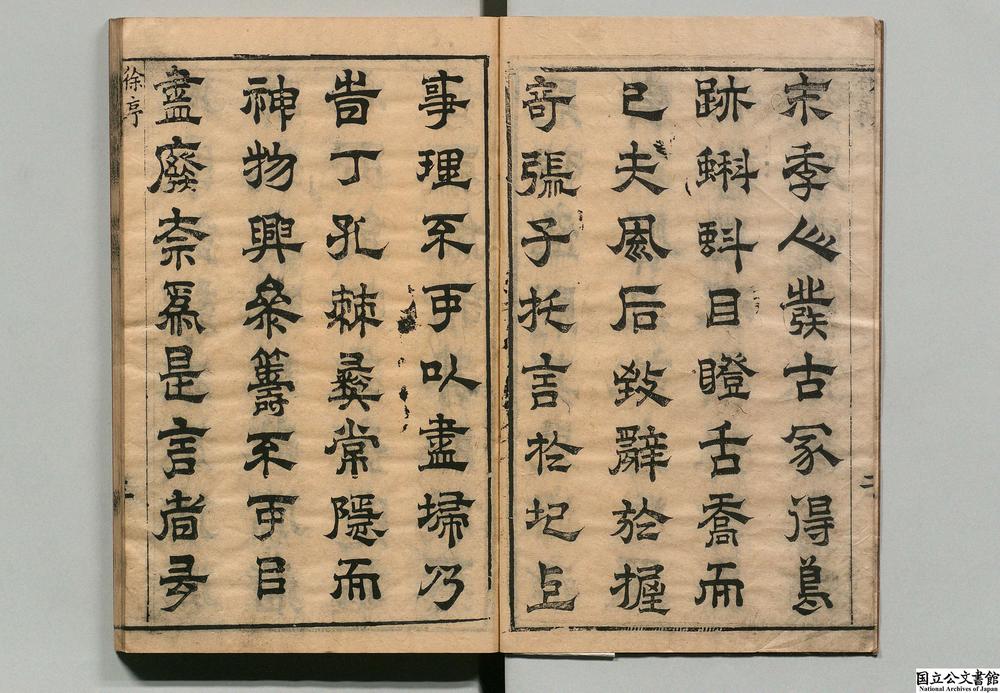 末季人發古冢得鳥
跡蝌蚪目瞪舌喬而
已夫風后致辭於握
奇張子托言於圯上
事理不可以盡掃乃
旹丁孔棘彝常隱而
神物興參籌不可㠯
盡廢柰爲是言者
徐亭
国立公文書館
National Archives of Japan